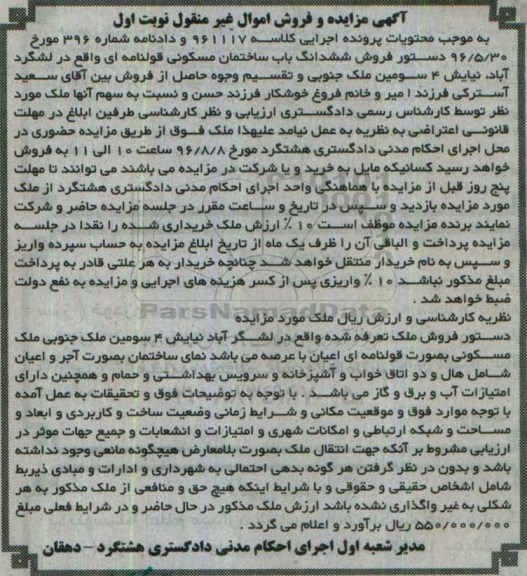 آگهی مزایده و فروش اموال غیر منقول نوبت اول
به موجب محتویات پرونده اجرایی کلاسه ۹۶۱۱۱۷ و دادنامه شماره ۳۹۶ مورخ
۹۶/۵/۳۰ دستور فروش ششدانگ باب ساختمان مسکونی قولنامه ای واقع در لشگرد
آباد، نیایش ۴ سومین ملک جنوبی و تقسیم وجوه حاصل از فروش بین آقای سعید
آسترکی فرزند امیر و خانم فروغ خوشکار فرزند حسن و نسبت به سهم آنها ملک مورد
نظر توسط کارشناس رسمی دادگستری ارزیابی و نظر کارشناسی طرفین ابلاغ در مهلت
قانونی اعتراضی به نظریه به عمل نیامد علیهذا ملک فوق از طریق مزایده حضوری در
محل اجرای احکام مدنی دادگستری هشتگرد مورخ ۹۶/۸/۸ ساعت ۱۰ الی ۱۱ به فروش
خواهد رسید کسانیکه مایل به خرید و یا شرکت در مزایده می باشند می توانند تا مهلت
پنج روز قبل از مزایده با هماهنگی واحد اجرای احکام مدنی دادگستری هشتگرد از ملک
مورد مزایده بازدید و سپس در تاریخ و ساعت مقرر در جلسه مزایده حاضر و شرکت
نمایند برنده مزایده موظف است ۱۰ ٪ ارزش ملک خریداری شده را نقدا در جلسه
مزایده پرداخت و الباقی آن را ظرف یک ماه از تاریخ ابلاغ مزایده به حساب سپرده واریز
و سپس به نام خریدار منتقل خواهد شد چنانچه خریدار به هر علتی قادر به پرداخت
مبلغ مذکور نباشد ۱۰ ٪ واریزی پس از کسر هزینه های اجرایی و مزایده به نفع دولت
ضبط خواهد شد .
نظریه کارشناسی و ارزش ریال ملک مورد مزایده
دستور فروش ملک تعرفه شده واقع در لشگر آباد نیایش ۴ سومین ملک جنوبی ملک
مسکونی بصورت قولنامه ای اعیان با عرصه می باشد نمای ساختمان بصورت آجر و اعیان
شامل هال و دو اتاق خواب و آشپزخانه و سرویس بهداشتی و حمام و همچنین دارای
امتیازات آب و برق و گاز می باشد . با توجه به توضیحات فوق و تحقیقات به عمل آمده
با توجه موارد فوق و موقعیت مکانی و شرایط زمانی وضعیت ساخت و کاربردی و ابعاد و
مساحت و شبکه ارتباطی و امکانات شهری و امتیازات و انشعابات و جمیع جهات موثر در
ارزیابی مشروط بر آنکه جهت انتقال ملک بصورت بلامعارض هیچگونه مانعی وجود نداشته
باشد و بدون در نظر گرفتن هر گونه بدهی احتمالی به شهرداری و ادارات و مبادی ذیربط
شامل اشخاص حقیقی و حقوقی و با شرایط اینکه هیچ حق و منافعی از ملک مذکور به هر
شکلی به غیر واگذاری نشده باشد ارزش ملک مذکور در حال حاضر و در شرایط فعلی مبلغ
۵۵۰/۰۰۰/۰۰۰ ریال برآورد و اعلام می گردد .
مدیر شعبه اول اجرای احکام مدنی دادگستری هشتگرد – دهقان
ParsNamadData